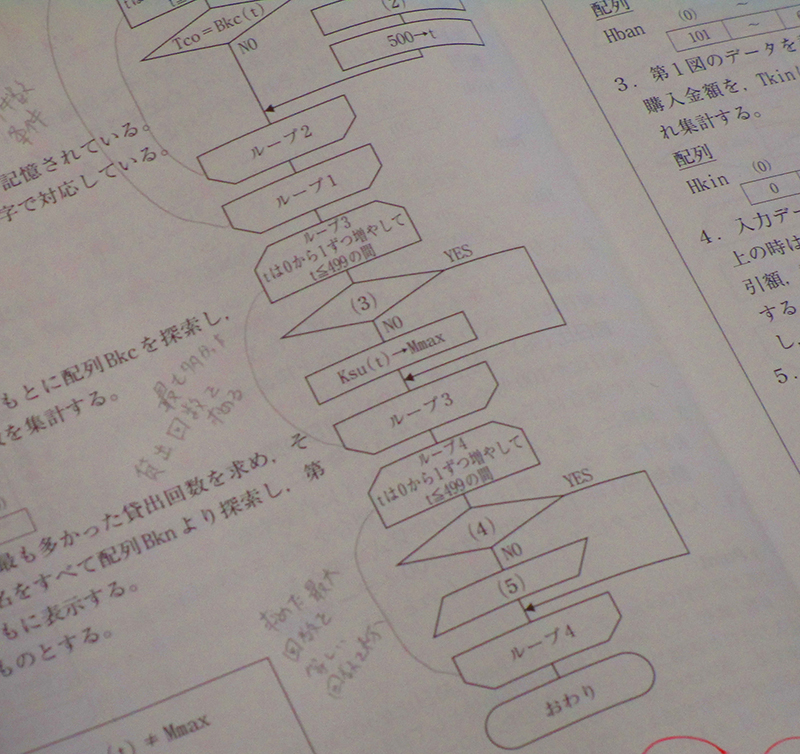 Tco=Bkc(t)
NO
(2)
500→t
ループ2
ループ1
ループ3
tは0から1ずつ増やして
t≦499の間
YES
(3)
NO
Ksu(t)→Mmax
ループ3
ループ4
tは0から1ずつ増やして
t≦499の間
YES
(4)
NO
(5)
ループ4
おわり
記憶されている。
字で対応している。
もとに配列Bkcを探索し,
を集計する。
最も多かった貸出回数を求め,そ
名をすべて配列Bknより探索し,第
もに表示する。
ものとする。
(t) ≠ Mmax
貸出回数を
求めた最大
回数と
配列
(0) ~
Hban
101 ~
3. 第1図のデータを
購入金額を, Tkin
れ集計する。
配列
(0)
Hkin
0
4. 入力デー
上の時は
引額,
する
し,
5.